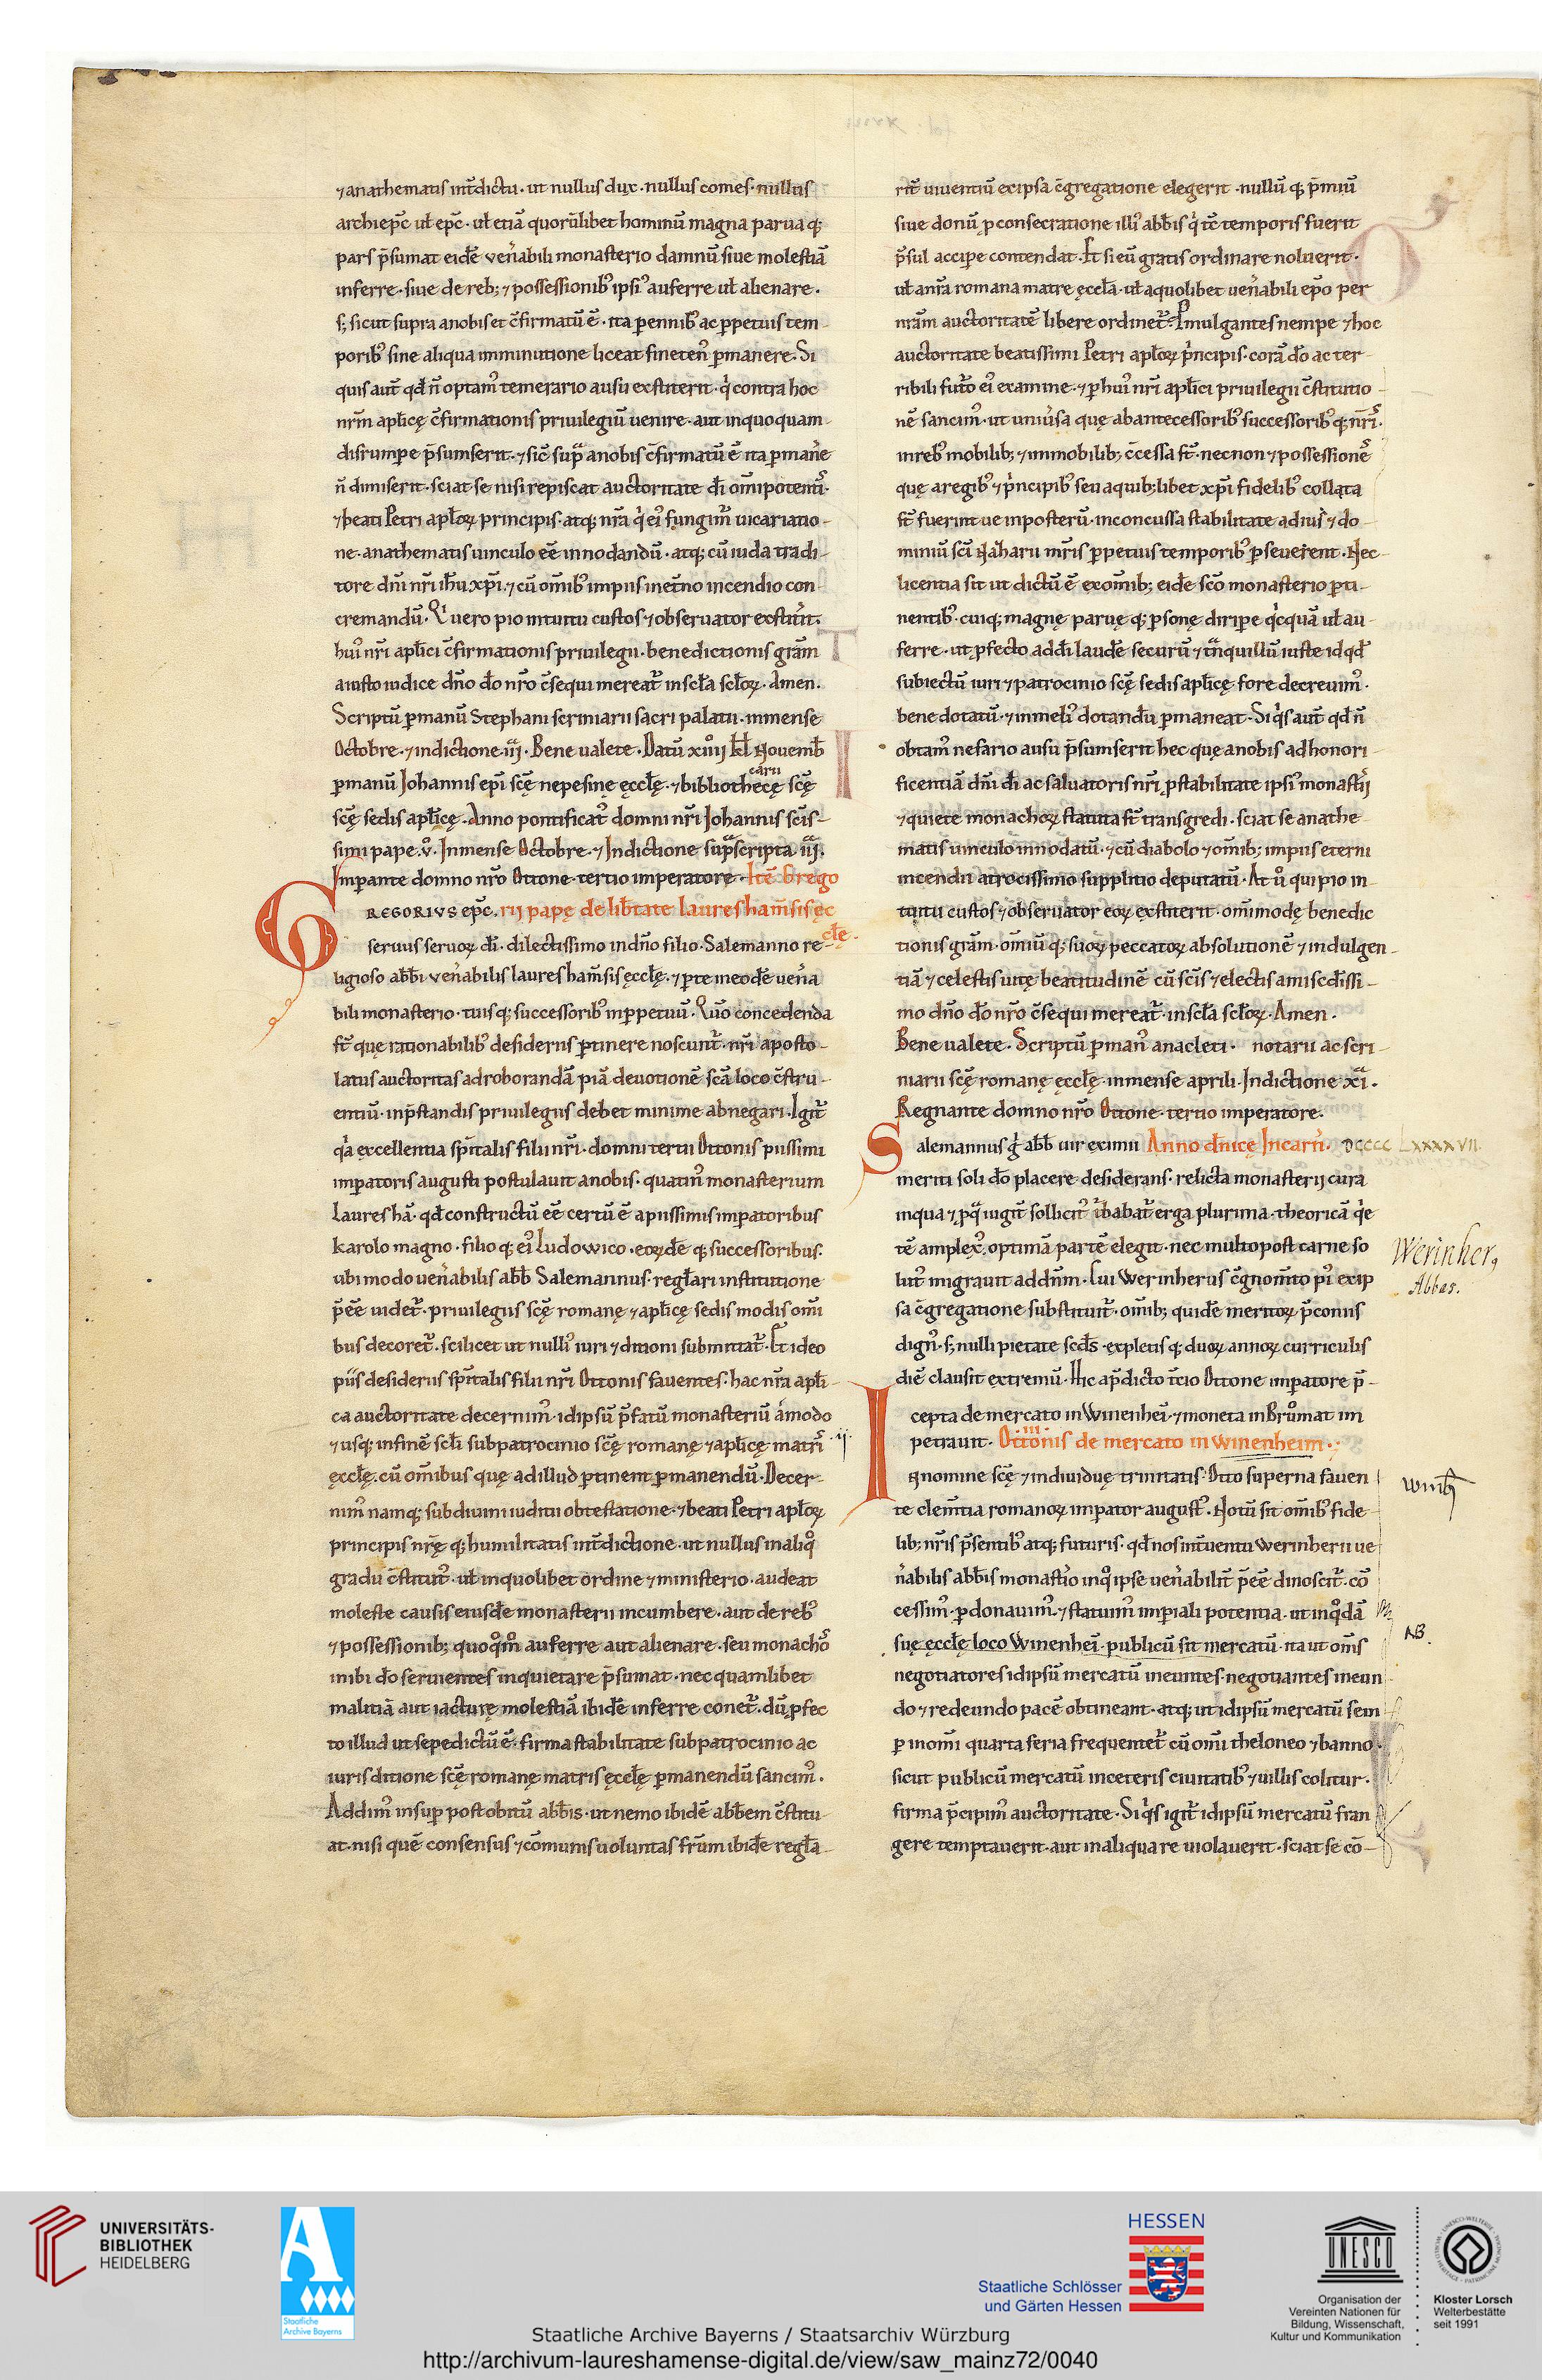 ⁊anathematis int̄dictu · ut nullus dux · nullus comes · nullus
archiep̄c ul̄ ep̄c · ul̄ etiā quorūlibet hominū magna parua q;
pars p̄sumat eidē uen̄abili monasterio damnū siue molestiā
inferre · siue de reb; ⁊ possessionib᷒ ipsi᷒ auferre ul̄ alienare ·
s; sicut supra anobis et c̄firmatū ē · ita ꝑennib᷒ ac ꝑpetuis tem-
porib᷒ sine aliqua imminutione liceat fineten᷒ ꝑmanere. Si
quis aut̄ qd̄ n̄ optam᷒ temerario ausu exstiterit · q̇ contra hoc
nr̄m apl̄icę c̄firmationis priuilegiū uenire · aut inquoquam
disrumpe p̄sumserit · ⁊ sic̄ sup̄ anobis c̄firmatū ē ita ꝑman̄e
n̄ dimiserit · sciat se nisi repiscat auctoritate dī om̄ipotent̄ ·
⁊ beati Petri apl̄oꝝ principis · atq; nr̄a q̇ ei᷒ fungim᷒ uicariatio-
ne · anathematis uinculo ēē innodandū · atq; cū iuda tradi-
tore dn̄i nr̄i ih̄u xp̄i · ⁊ cū om̄ib᷒ impiis inet̄no incendio con-
cremandū. Qͥ uero pio intuitu custos ⁊ obseruator exstit̄it ·
hui᷒ nr̄i apl̄ici c̄firmationis priuilegii · benedictionis grām
aiusto iudice dn̄o dō nr̄o c̄sequi mereat̄ inscl̄a scl̄oꝝ · Amen.
Scriptū ꝑmanū Stephani scriniarii sacri palatii · inmense
Octobre · ⁊ indictione · iij · Bene ualete · Datū xiiij kl̄ Nouemb̄
ꝑmanū Johannis ep̄i scę nepesinę ęccl̄ę · ⁊ bibliothecę carii scę
scę sedis apl̄icę. Anno pontificat᷒ domni nr̄i Johannis scīs-
simi pape. v̊. Inmense Octobre · ⁊ Indictione sup̄scripta iij.
Imꝑante domno nr̄o Ottone tertio imperatore · Itē Grego
GREGORIVS ep̄c. rij papę de lib̄tate laureshām̄sis ęc
cl̄e ·
seruus seruoꝝ dī · dilectissimo indn̄o filio · Salemanno re-
ligioso abb̄i uen̄abilis laureshām̄sis ęccl̄ę · ⁊ ꝑte ineodē uen̄a
bili monasterio · tuisq; successorib᷒ inꝑpetuū. Qm̄ concedenda
st̄ que rationabilib᷒ desideriis ꝑtinere noscunt̄ · nr̄i aposto-
latus auctoritas adroborandā piā deuotionē scā loco c̄stru-
entiū · inp̄standis priuilegiis debet minime abnegari. Igit̄
q̇a excellentia sp̄italis filii nr̄i · domni tertii Ottonis piissimi
imꝑatoris augusti postulauit anobis · quatin᷒ monasterium
Lauresham̄ · qd̄ constructū ēē certū ē apiissimis imꝑatoribus
karolo magno · filio q; ei᷒ Ludowico · eoꝝdē q; successoribus ·
ubi modo uen̄abilis abb̄ Salemannus · regl̄ari institutione
p̄ēē uidet̄ · priuilegiis scę romanę ⁊ apl̄icę sedis modis om̄i
bus decoret̄ · scilicet ut nulli᷒ iuri ⁊ditioni submittat̄ · Et ideo
piis desideriis sp̄italis filii nr̄i Ottonis fauentes · hac nr̄a apl̄i-
ca auctoritate decernim᷒ · idipsū p̄fatū monasteriū amodo
⁊usq; infinē scl̄i subpatrocinio scę romanę ⁊apl̄icę matri᷒
ęccl̄ę · cū om̄ibus quę adillud ꝑtinent ꝑmanendū · Decer-
nim᷒ namq; subdiuini iuditii obtestatione · ⁊ beati Petri apl̄oꝝ
principis nr̄ę q; humilitatis int̄dictione · ut nullus inaliq̊
gradu c̄stitut᷒ · ul̄ inquolibet ordine ⁊ ministerio · audeat
moleste causis eiusdē monasterii incumbere · aut de reb᷒
⁊ possessionib; quoq̊m̊ auferre aut alienare · seu monacho᷒
inibi dō seruientes inquietare p̄sumat · nec quamlibet
malitiā aut iacturę molestiā ibidē inferre conet̄ · dū pfec
to illud ut sepedictū ē · firma stabilitate subpatrocinio ac
iurisditione scę romanę matris ęccl̄ę ꝑmanendū sancim᷒ ·
Addim᷒ insuꝑ post obitū abb̄is · ut nemo ibidē abb̄em c̄stitu-
at · nisi quē consensus ⁊ cōmunis uoluntas fr̄um ibidē regl̄a-
rit̄ uiuentiū exipsa c̄gregatione elegerit · nullū q; p̄miū
siue donū ꝓ consecratione illi᷒ abb̄is q̇ tē temporis fuerit
p̄sul acciꝑe contendat. Et si eū gratis ordinare noluerit ·
ul̄ anr̄a romana matre ęccl̄a · ul̄ aquolibet uen̄abili ep̄o per
nr̄am auctoritatē libere ordinet̄. Pmulgantes nempe ⁊ hoc
auctoritate beatissimi Petri apl̄oꝝ p̄ncipis · corā dō ac ter-
ribili futo᷒ ei᷒ examine · ⁊ ꝑhui᷒ nr̄i apl̄ici priuilegii c̄stitutio-
nē sancim᷒ · ut uniūsa quę abantecessorib᷒ successorib᷒ q; nr̄i᷒ ·
inreb᷒ mobilib; ⁊ immobilib; c̄cessa st̄ · necnon ⁊ possessione᷒
quę aregib᷒ ⁊ p̄ncipib᷒ seu aquib;libet xp̄i fidelib᷒ collata
st̄ fuerint ue inposterū · inconcussa stabilitate adius᷒ ⁊ do-
miniū scī Nazharii mr̄is ꝑpetuis temporib᷒ ꝑseuerent · Nec
licentia sit ut dictū ē exom̄ib; eidē scō monasterio ꝑti-
nentib᷒ · cuiq; magnę paruę q; ꝑsonę diriꝑe q̇cquā ul̄ au-
ferre · ut ꝓfecto addī laudē securū ⁊ tnquillū iuste id qd̄
subiectū iuri ⁊ patrocinio scę sedis apl̄icę fore decreuim᷒ ·
bene dotatū · ⁊ inmeli᷒ dotandū ꝑmaneat · Si q̇s aut̄ qd̄ n̄
obtam᷒ nefario ausu p̄sumserit hec quę anobis adhonori-
ficentiā dn̄i dī ac saluatoris nr̄i ꝓstabilitate ipsi᷒ monastij
⁊quiete monachoꝝ statuta st̄ transgredi · sciat se anathe
matis uinculo innodatū · ⁊ cū diabolo ⁊ om̄ib; impiis eterni
incendii atrocissimo supplitio deputatū · At ů qui pio in
tuitu custos ⁊ obseruator eoꝝ exstiterit · om̄imodę benedic
tionis grām · om̄iū q; suoꝝ peccatoꝝ absolutionē ⁊ indulgen-
tiā ⁊ celestis uitę beatitudinē cū scīs ⁊ electis amiscd̄issi-
mo dn̄o dō nr̄o c̄sequi mereat̄ · inscl̄a scl̄oꝝ. Amen ·
Bene ualete. Scriptū ꝑman᷒ anacleti · notarii ac scri-
niarii scę romanę ęccl̄ę · inmense aprili · Indictione xi ·
Regnante domno nr̄o Ottone · tertio imperatore.
Salemannus g̊ abb̄ uir eximii Anno dn̄icę Incarn̄. DCCCC LXXXXVII.
meriti soli dō placere desiderans · relicta monasterij cura
inqua ⁊ ꝓq̄ iugit̄ sollicit᷒ t̄babat̄ erga plurima · theoricā q̇e
tē amplex᷒ · optimā partē elegit · nec multo post carne so
Werinher᷒
Abbas.
lut᷒ migrauit addn̄m · Cui Werinherus c̄gnom̄to pi᷒ exip
sa c̄gregatione substituit̄ · om̄ib; quidē meritoꝝ p̄coniis
dign᷒ · s; nulli pietate scd̄s · expletis q; duoꝝ annoꝝ curriculis
diē clausit extremū. Hic ap̄dicto t̄cio Ottone imꝑatore p̄-
cepta de mercato inWinenhei · ⁊ moneta inBrůmat im
petrauit · Ottonis iii de mercato in winenheim ·
Innomine scę ⁊ indiuiduę trinitatis · Otto superna fauen
winh̄
te clem̄tia romanoꝝ imꝑator august᷒ · Notū sit om̄ib᷒ fide
lib; nr̄is p̄sentib᷒ atq; futuris · qd̄ nos int̄uentu werinherii ue
n̄abilis abb̄is monast̄io inq̊ ipse uen̄abilit̄ p̄ēē dinoscit̄ · cō
cessim᷒ · ꝑdonauim᷒ · ⁊ statuim᷒ imꝑiali potentia · ut inq̊dā
NB.
suę ęccl̄ę loco Winenhei · publicū sit mercatū · ita ut om̄s
negotiatores idipsū mercatū ineuntes · negotiantes ineun
do ⁊ redeundo pacē obtineant · atq; ut idipsū mercatū sem
ꝑ inom̄i quarta feria frequentet̄ cū om̄i theloneo ⁊ banno
sicut publicū mercatū inceteris ciuitatib᷒ ⁊ uillis colitur ·
firma p̄cipim᷒ auctoritate · Si q̇s igit̄ idipsū mercatū fran
gere temptauerit · aut inaliqua re uiolauerit · sciat se cō-
UNIVERSITÄTS-
BIBLIOTHEK
HEIDELBERG
Staatliche
Archive Bayerns
HESSEN
Staatliche Schlösser
und Gärten Hessen
UNESCO
Organisation der
Vereinten Nationen für
Bildung, Wissenschaft,
Kultur und Kommunikation
Kloster Lorsch
Welterbestätte
seit 1991
Staatliche Archive Bayerns / Staatsarchiv Würzburg
http://archivum-laureshamense-digital.de/view/saw_mainz72/0040